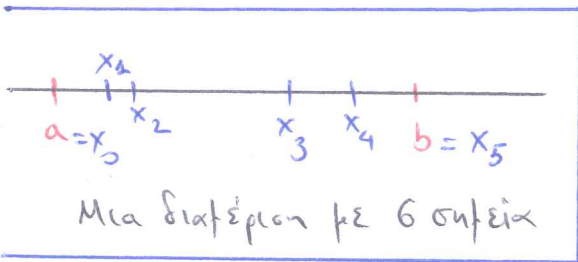 x₁
a = x₀ x₂ x₃ x₄ b = x₅
Μια διαμέριση με 6 σημεία